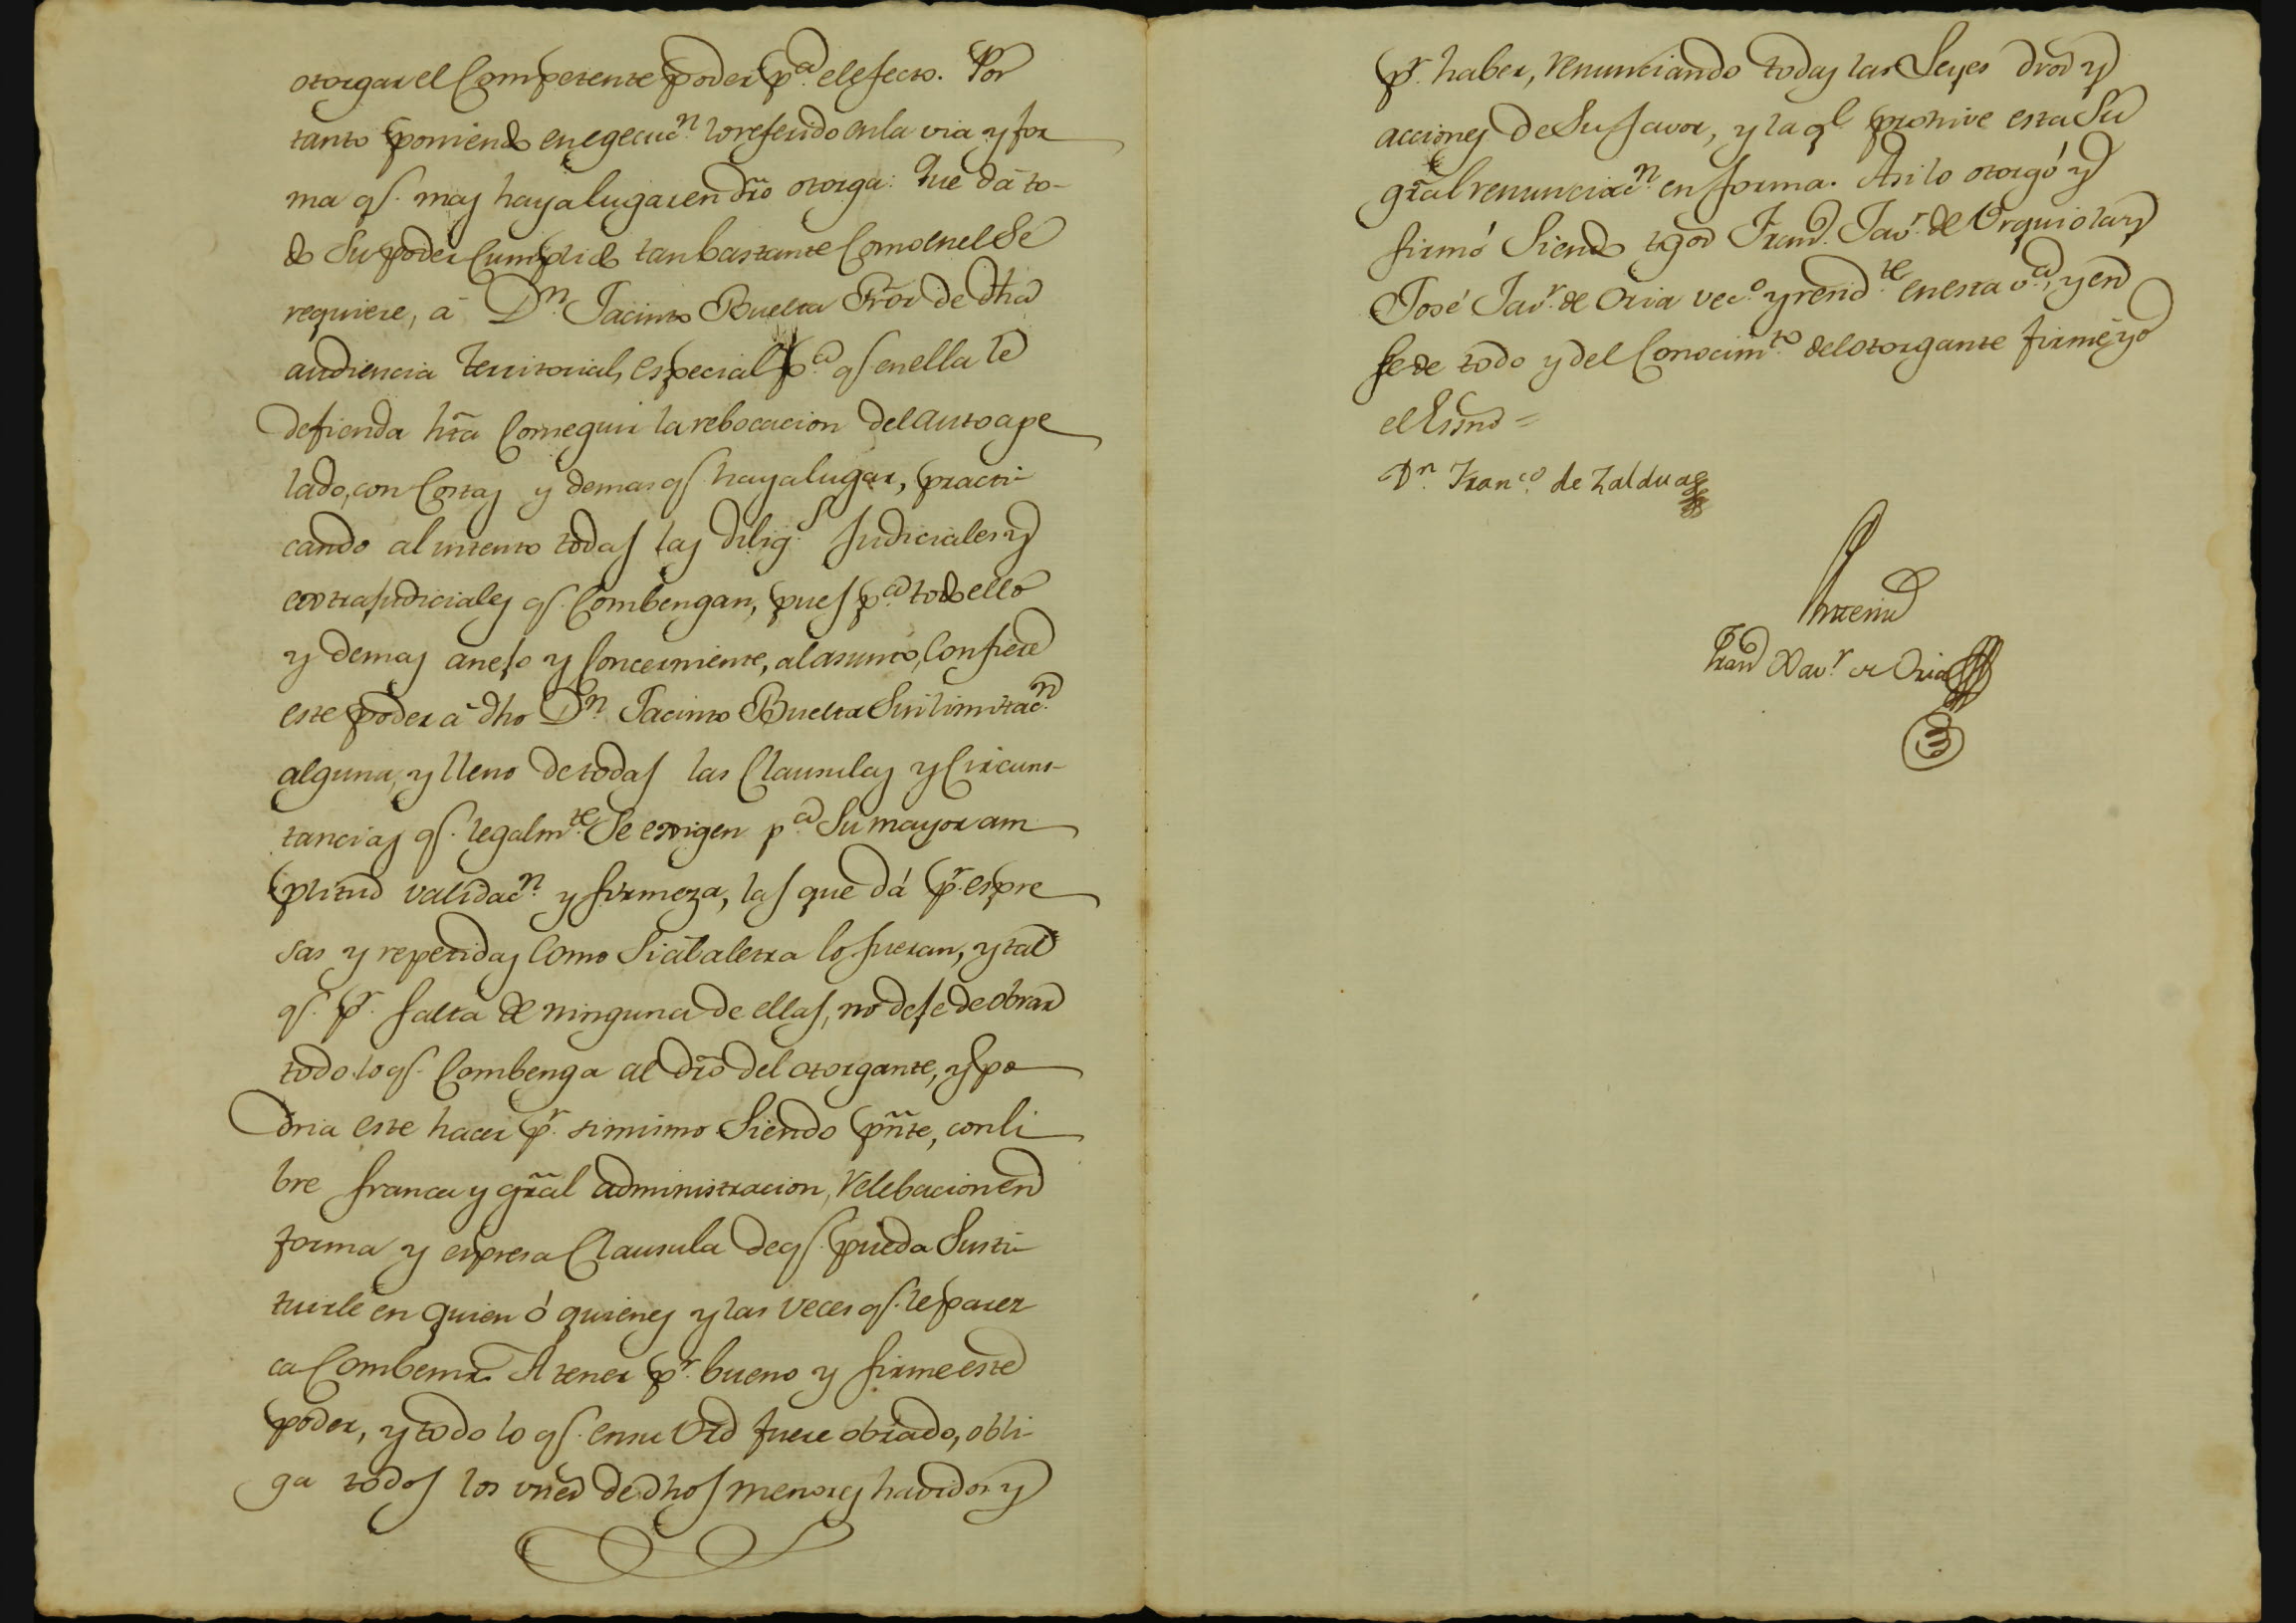 otorgar el Competente poder p.ª el efecto. Por
tanto poniendo en egecuc.n lo referido en la via y for
ma q.e mas haya lugar en dro otorga: Que dá to-
do Su poder Cumplido tan bastante Como en el Se
requiere, á D.n Jacinto Buelta Pror de dha
audiencia territorial, especial p.ª q.e en ella le
defienda hta Conseguir la rebocacion del auto ape
lado, con Costas y demas q.e haya lugar, practi-
cando al intento todas las dilig.s Judiciales y
extrajudiciales q.e Combengan, pues p.ª todo ello
y demas anejo y Concerniente, al asunto, Confiere
este poder á dho D.n Jacinto Buelta Sin limitac.n
alguna, y lleno de todas las Clausulas y Circuns-
tancias q.e legalm.te Se exigen p.ª Su mayor am
plitud validac.n y firmeza, las que dá p.r espre
sas y repetidas Como Si á la letra lo fueran, y tal
q.e p.r falta de ninguna de ellas, no deje de obrar
todo lo q.e Combenga al dro del otorgante, y po
dria este hacer p.r simismo Siendo pñte, con li
bre franca y gral administracion, relebacion en
forma y espresa Clausula de q.e pueda Susti-
tuirle en quien ó quienes y las veces q.e le parez
ca Combenir. A tener p.r bueno y firme este
poder, y todo lo q.e en su vrd fuere obrado, obli-
ga todos los vnes de dhos menores havidos y
p.r haber, renunciando todas las Leyes dros y
acciones de Su favor, y la q.l prohive esta Su
gral renunciac.n en forma. Asi lo otorgó y
firmó Siendo tgos Fran.co Jav.r de Urquiola y
José Jav.r de Oria vec.o y resid.te en esta v.ª, y en
fe de todo y del Conocim.to del otorgante firmé yo
el Essno =
D.n Fran.co de Zaldua
Antemi
Fran.co Xav.r de Oria